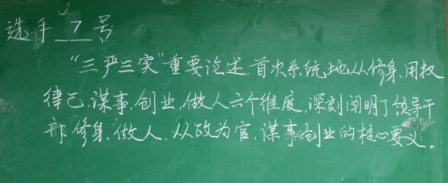 选手 7 号
“三严三实”重要论述,首次系统地从修身、用权
律己、谋事、创业、做人六个维度,深刻阐明了领导干
部修身、做人、从政为官、谋事创业的核心要义。